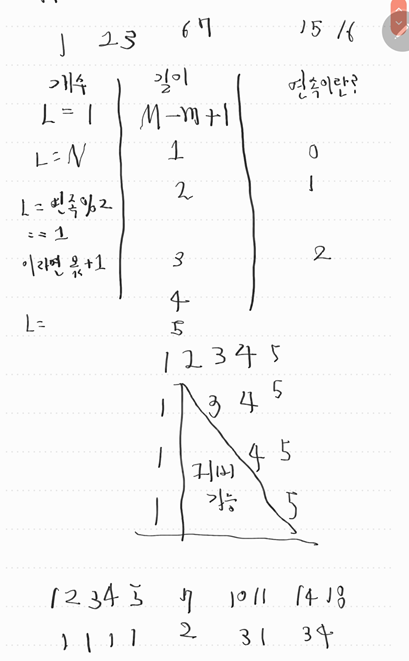 1 23 67 15 16
개수 길이 연속이란?
L = 1 M-m+1
L = N 1 0
2 1
L = 연속%2
== 1
이라면 몫+1 3 2
4
L = 5
1 2 3 4 5
1 3 4 5
1 4 5
1 제거 가능 5
1 2 3 4 5 7 10 11 14 18
1 1 1 1 2 3 1 3 4